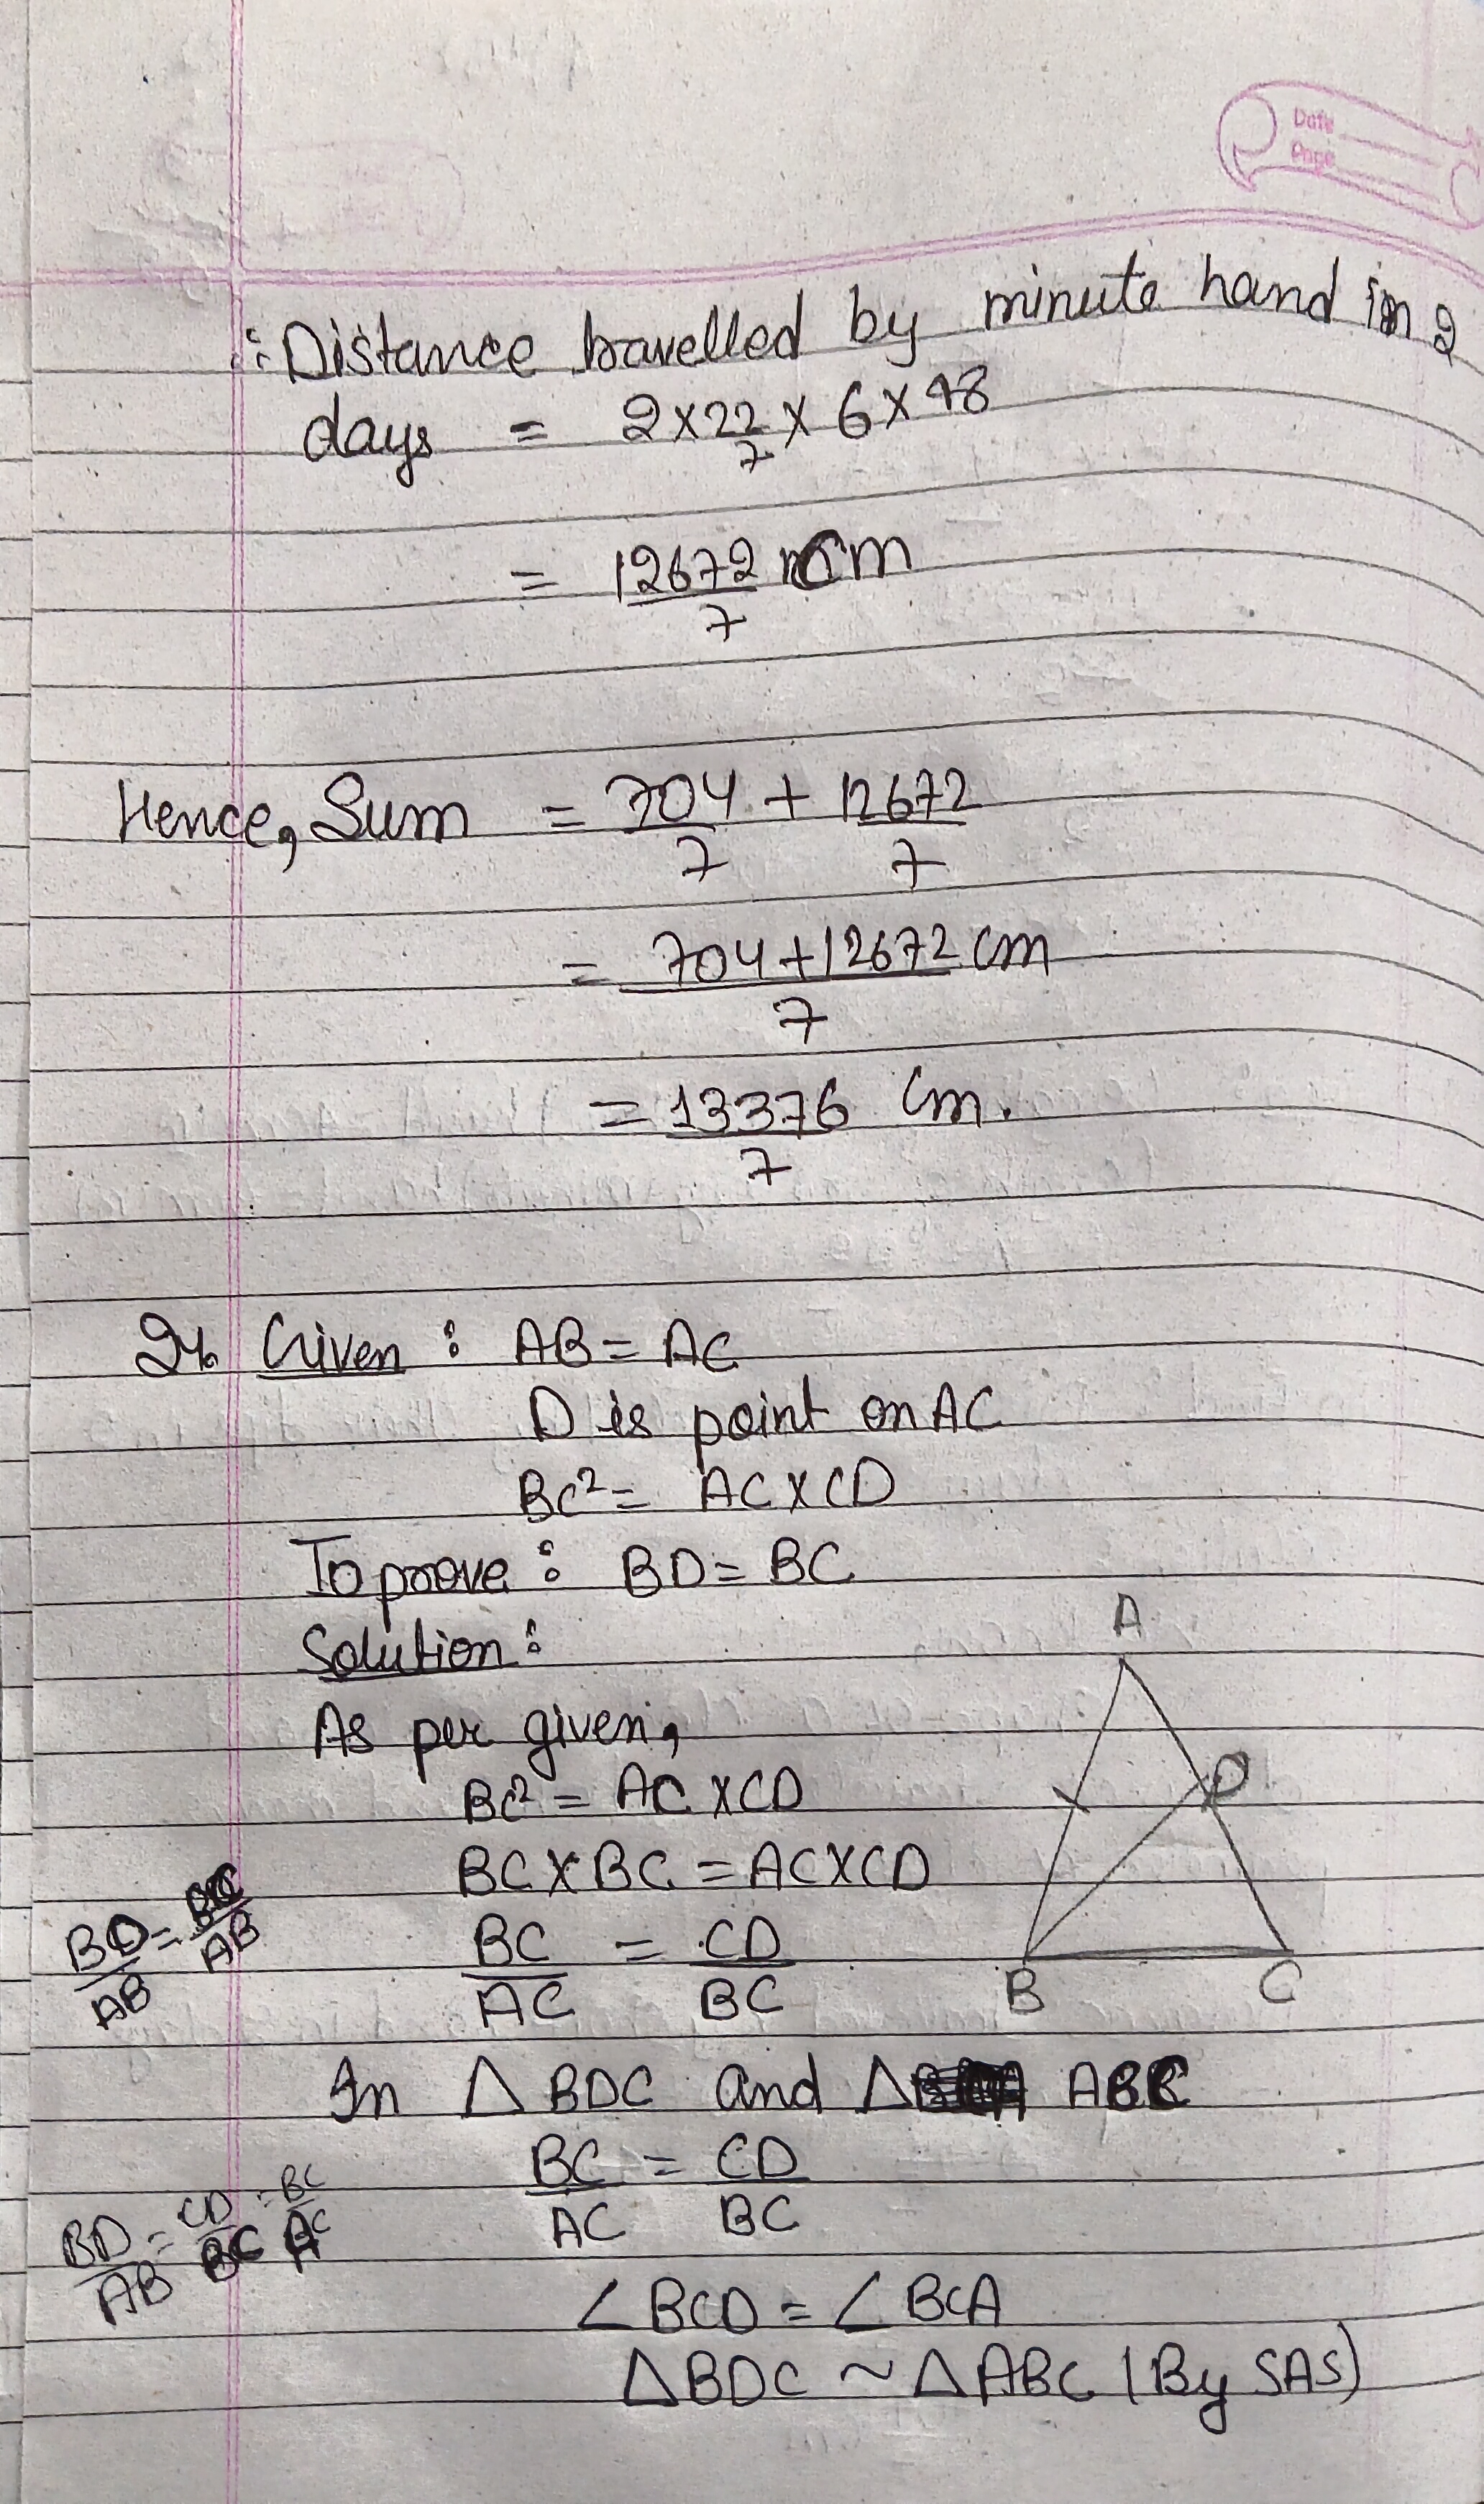 Date
Page
∴ Distance travelled by minute hand in 2
days = 2 × 22/7 × 6 × 48
= 12672/7 cm
Hence, Sum = 704/7 + 12672/7
= 704+12672/7 cm
= 13376/7 cm.
24. Given : AB = AC
D is point on AC
BC² = AC × CD
To prove : BD = BC
Solution :
As per given,
BC² = AC × CD
BC × BC = AC × CD
BC/AC = CD/BC
A
D
B C
BD/AB = BC/AB
In △ BDC and △ ABC
BC/AC = CD/BC
BD/AB = CD/BC = BC/AC
∠ BCD = ∠ BCA
△ BDC ~ △ ABC (By SAS)